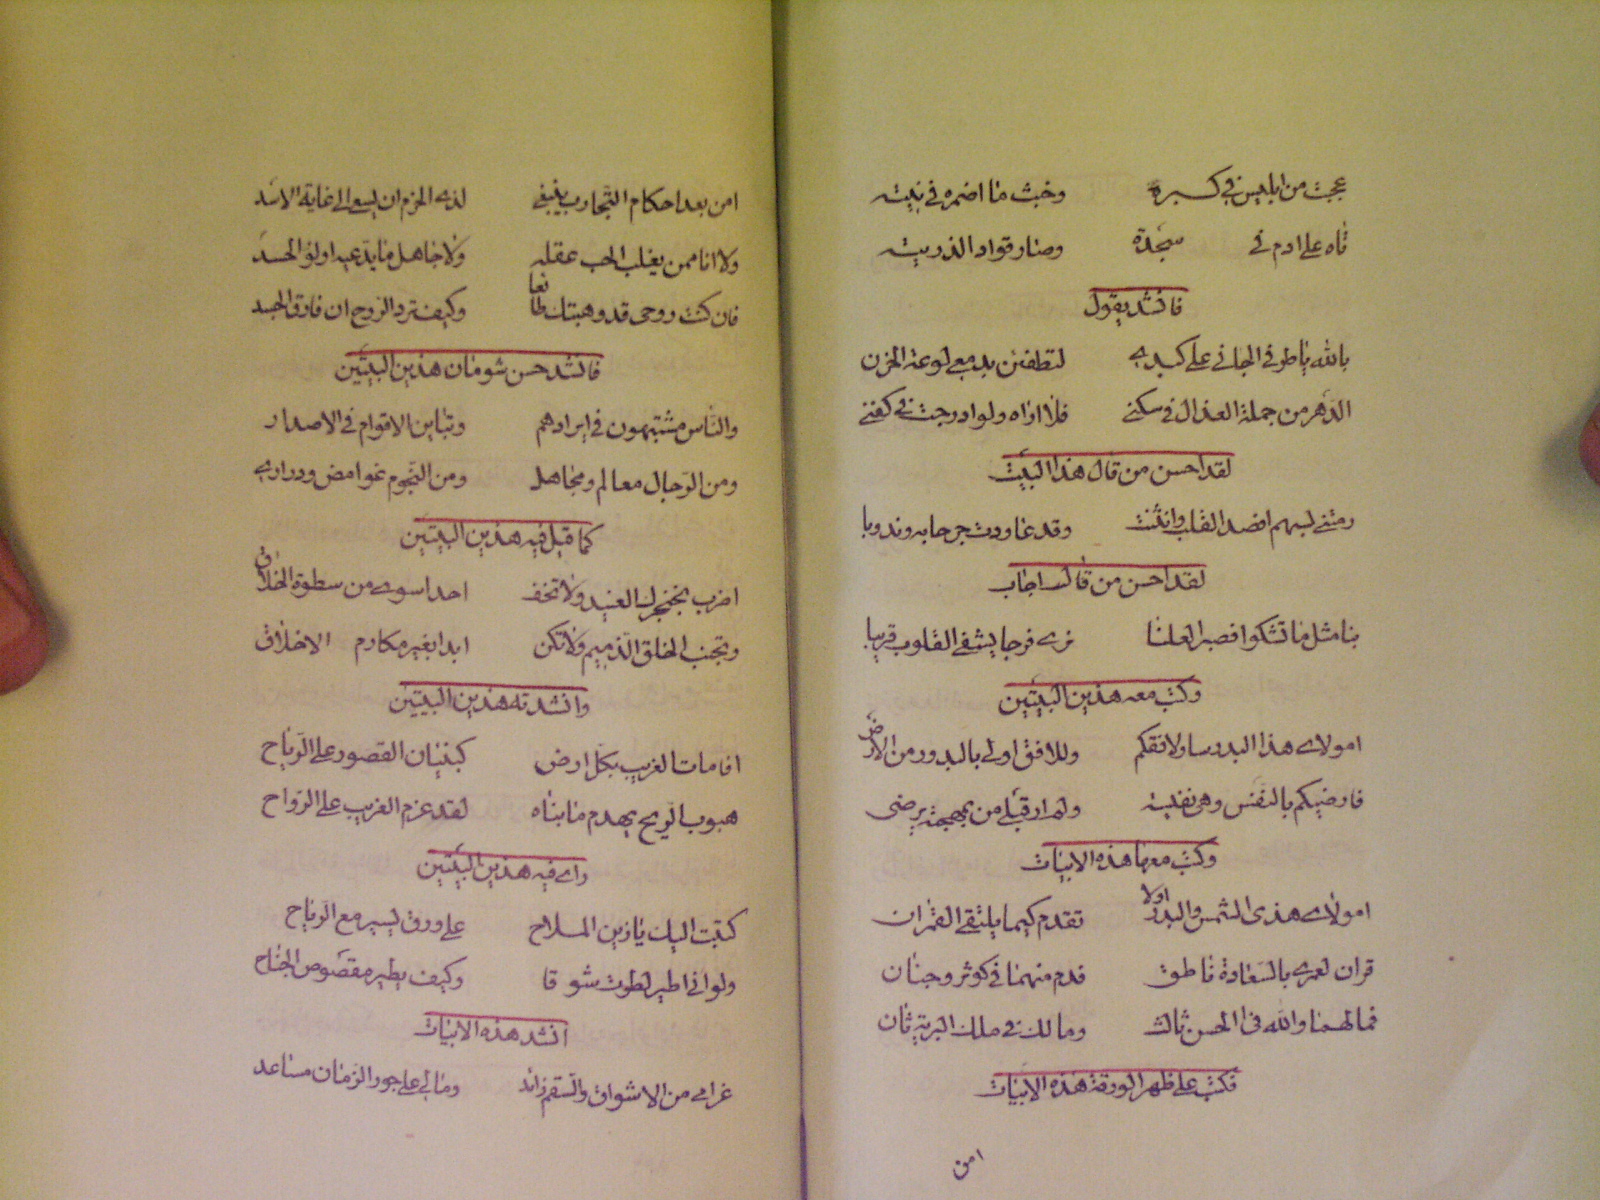 عجبت من ابليس في كبره وخبث ما اضمره في نيته
تاه على ادم في سجدة وصار قواد الذريته
فانشد يقول
بالله يا طرفي الجاني على كبدي لتطفئن بدمعي لوعة الحزن
الدهر من جملة العذال في سكني فلا اراه ولو ادرجت في كفني
لقد احسن من قال هذا البيت
رمتني بسهم اقصد القلب وانثنت وقد غاودت جرحا به وندوبا
لقد احسن من قال اجاب
بنا مثل ما تشكوا فصبرا لعلنا نرى فرجا يشفي القلوب قريبا
وكتب معه هذين البيتين
امولاي هذا البدر سار لافقكم وللافق اولى بالبدور من الارض
فارضيكم بالنفس وهي نفيسة ولم ار قبلي من بمهجته يرضى
وكتب معها هذه الابيات
امولاي هذى الشمس والبدر اولا تقدم كيما يلتقي القمران
قران لعمري بالسعادة ناطق فدم منهما في كوثر وجنان
فما لهما والله في الحسن ثالث وما لك في ملك البرية ثان
فكتب على ظهر الورقة هذه الابيات
امن
امن بعد احكام التجارب ينبغي لذي الحزم ان يسعى الى غاية الاسد
ولا انا ممن يغلب الحب عقله ولا جاهل ما يدعيه اولو الحسد
فان كنت روحي قد وهبتك طائعا وكيف ترد الروح ان فارق الجسد
فانشد حسن شومان هذين البيتين
والناس مشتبهون في ايرادهم وتباين الاقوام في الاصدار
ومن الرجال معالم ومجاهل ومن النجوم غوامض ودراري
كما قيل فيه هذين البيتين
اضرب بخنجرك العنيد ولا تخف احدا سوى من سطوة الخلاق
وتجنب الخلق الذميم ولا تكن ابدا بغير مكارم الاخلاق
وانشدته هذين البيتين
اقامات الغريب بكل ارض كبنيان القصور على الرياح
هبوب الريح يهدم ما بناه لقد عزم الغريب على الرواح
راى فيه هذين البيتين
كتبت اليك يا زين الملاح على ورق يسير مع الرياح
ولو اني اطير لطرت شوقا وكيف يطير مقصوص الجناح
انشد هذه الابيات
غرامي من الاشواق والسقم زائد وما لي على جور الزمان مساعد